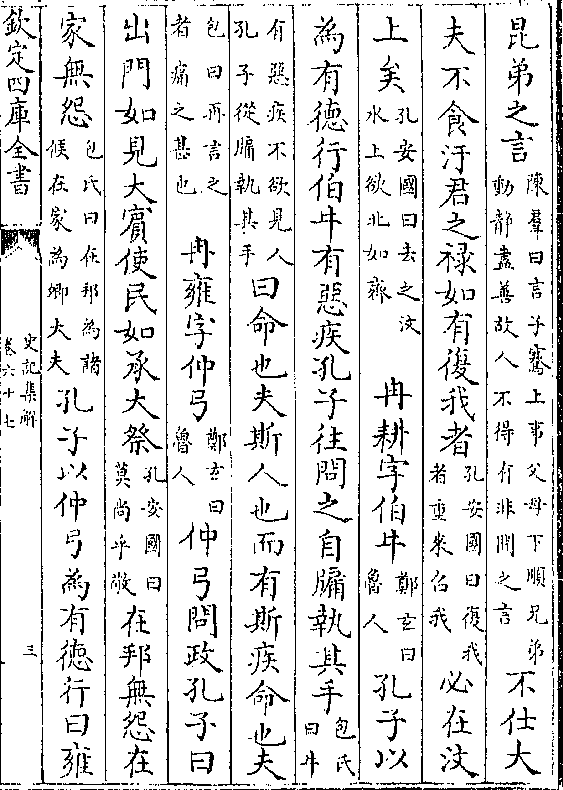 昆弟之言陳羣曰言子騫上事父母下順兄弟動静盡善故人不得有非間之言不仕大
夫不食汙君之禄如有復我者孔安國曰復我者重來召我必在汶
上矣孔安國曰去之汶水上欲北如齊 冉耕字伯牛鄭玄曰魯人孔子以
為有德行伯牛有惡疾孔子往問之自牖執其手包氏曰牛
有惡疾不欲見人孔子從牖執其手曰命也夫斯人也而有斯疾命也夫
包曰再言之者痛之甚也 冉雍字仲弓鄭玄曰魯人仲弓問政孔子曰
出門如見大賓使民如承大祭孔安國曰莫尚乎敬在邦無怨在
家無怨包氏曰在邦為諸候在家為卿大夫孔子以仲弓為有德行曰雍
欽定四庫全書
史記集解
卷六十七
三